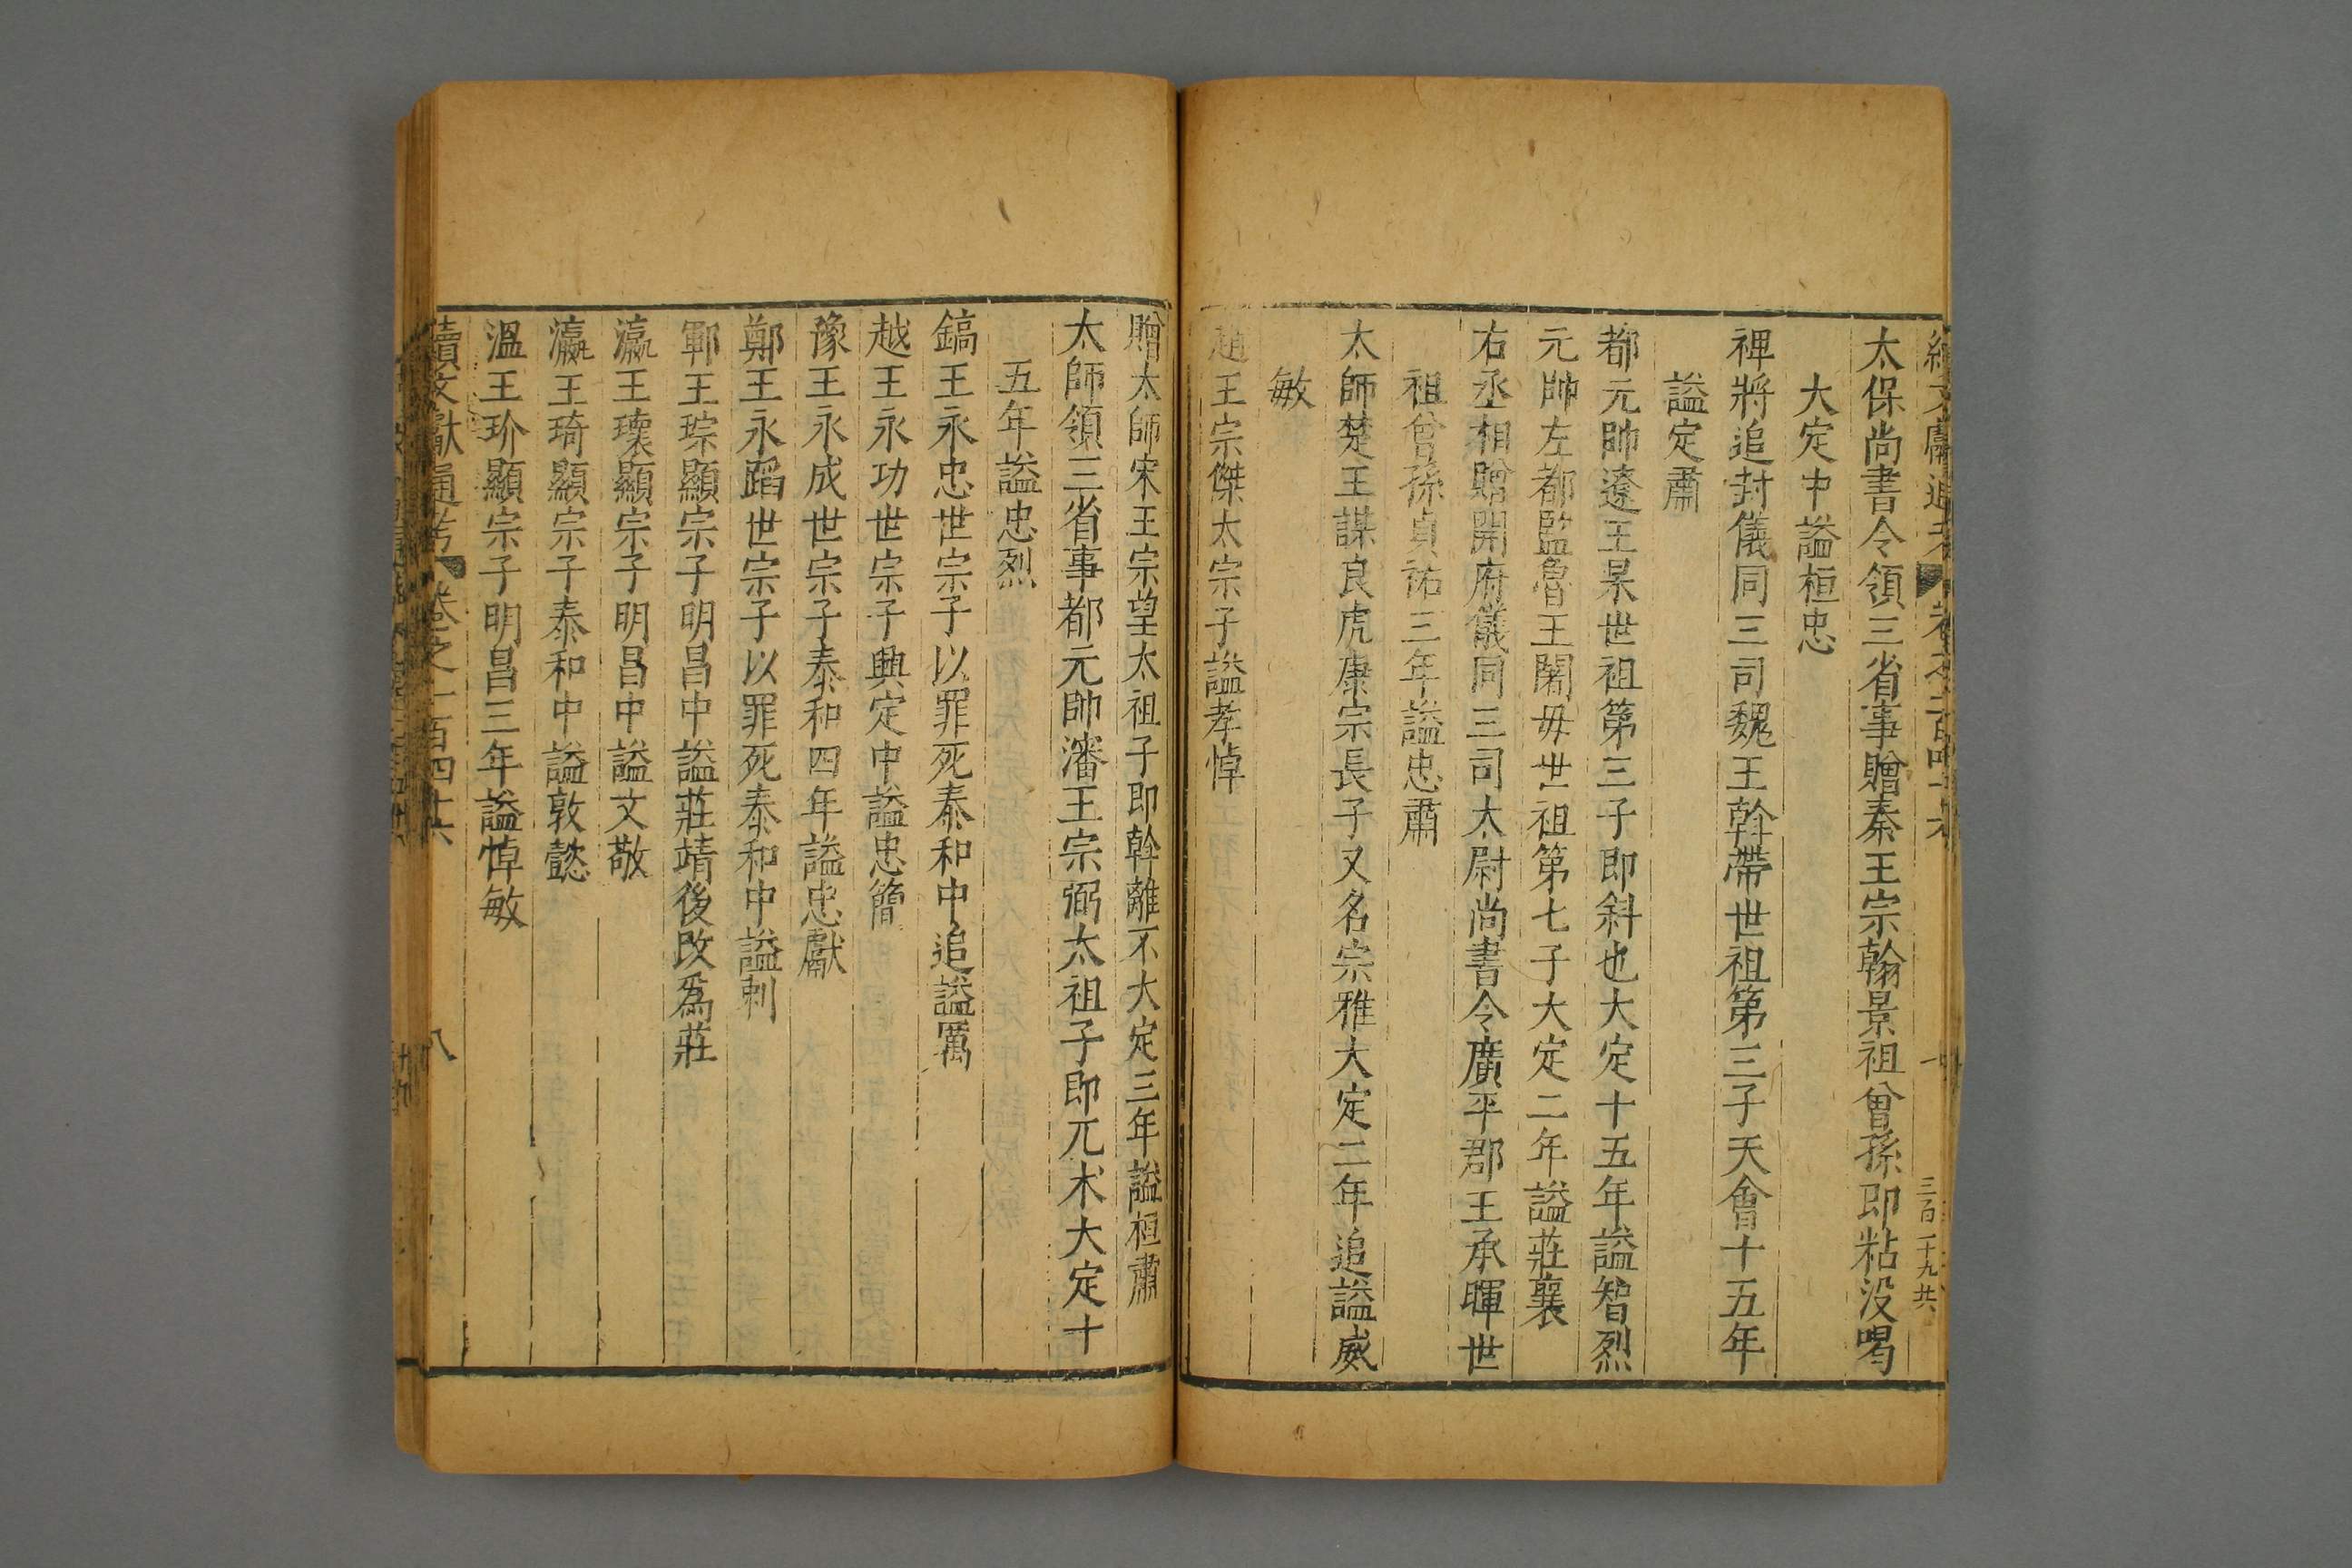 太保尚書令領三省事贈秦王宗翰景祖曾孫即粘没喝
大定中謚桓忠
裨將追封儀同三司魏王斡帶世祖第三子天會十五年
謚定肅
都元帥遼王杲世祖第三子即斜也大定十五年謚智烈
元帥左都監魯王闍毋世祖第七子大定二年謚莊襄
右丞相贈開府儀同三司太尉尚書令廣平郡王承暉世
祖曾孫貞祐三年謚忠肅
太師楚王謀良虎康宗長子又名宗雅大定二年追謚威
敏
趙王宗傑太宗子謚孝悼
贈太師宋王宗望太祖子即斡離不大定三年謚桓肅
太師領三省事都元帥瀋王宗弼太祖子即兀术大定十
五年謚忠烈
鎬王永忠世宗子以罪死泰和中追謚厲
越王永功世宗子興定中謚忠簡
豫王永成世宗子泰和四年謚忠獻
鄭王永蹈世宗子以罪死泰和中謚剌
鄆王琮顯宗子明昌中謚莊靖後改爲莊
瀛王瓌顯宗子明昌中謚文敬
瀛王琦顯宗子泰和中謚敦懿
溫王玠顯宗子明昌三年謚悼敏
續文獻通考 卷之一百四十六 八